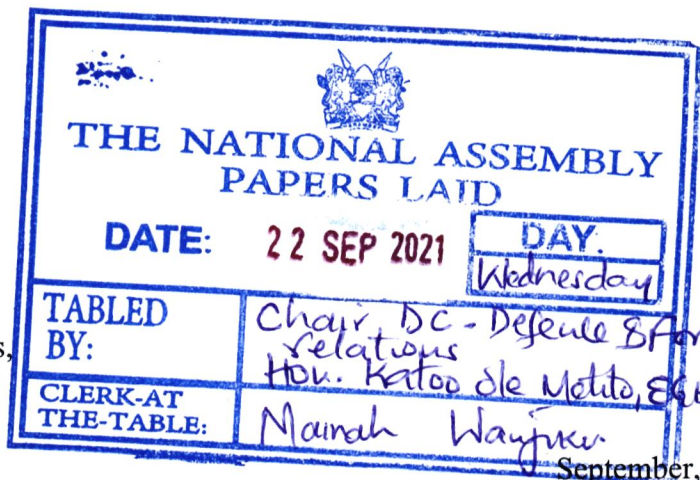 THE NATIONAL ASSEMBLY
PAPERS LAID
DATE: 22 SEP 2021
DAY.
Wednesday
TABLED BY:
Chair, DC - Defence &
relations
Hon. Katoo Ole Metito,
CLERK-AT THE-TABLE:
Mainah Wanjiku
September,